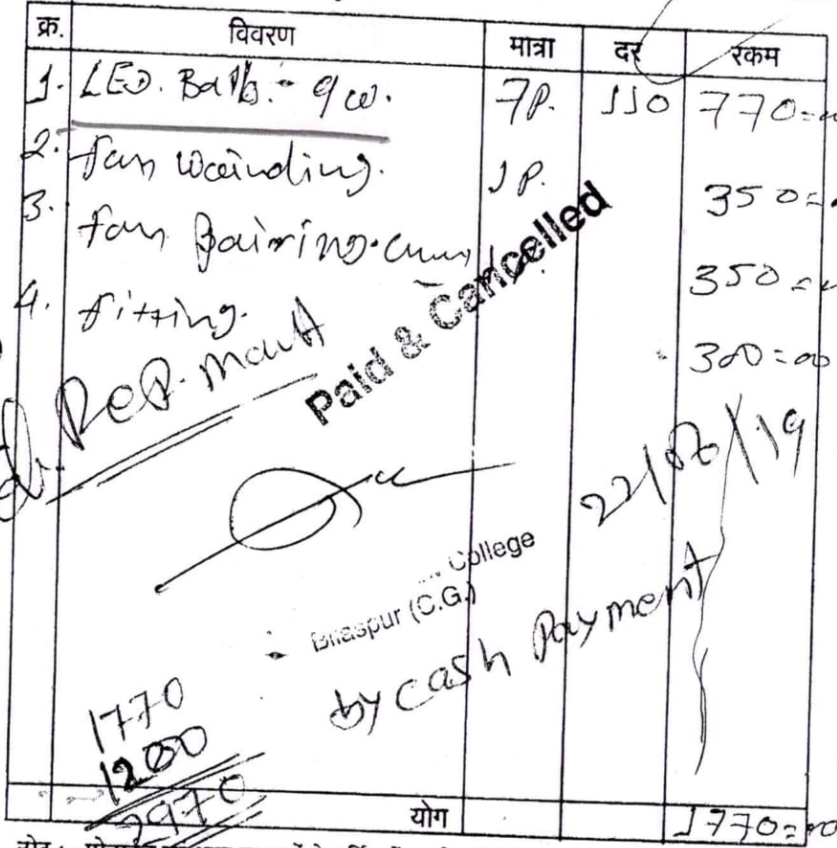 क्र. विवरण मात्रा दर रकम
1. LED. Balb:- 9w. 7P. 110 770=00
2. fan wainding. 1P. 350=
3. fan Bairing. 350=
4. fitting. 300=00
Paid & Cancelled
22/ /19
College
Bilaspur (C.G.)
by cash Payment
1770
1200
2970
योग 1770=00